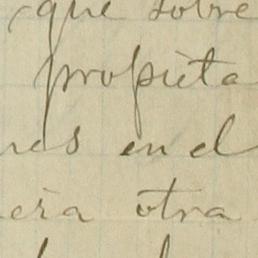 que sobre
propieta
nas en el
era otra